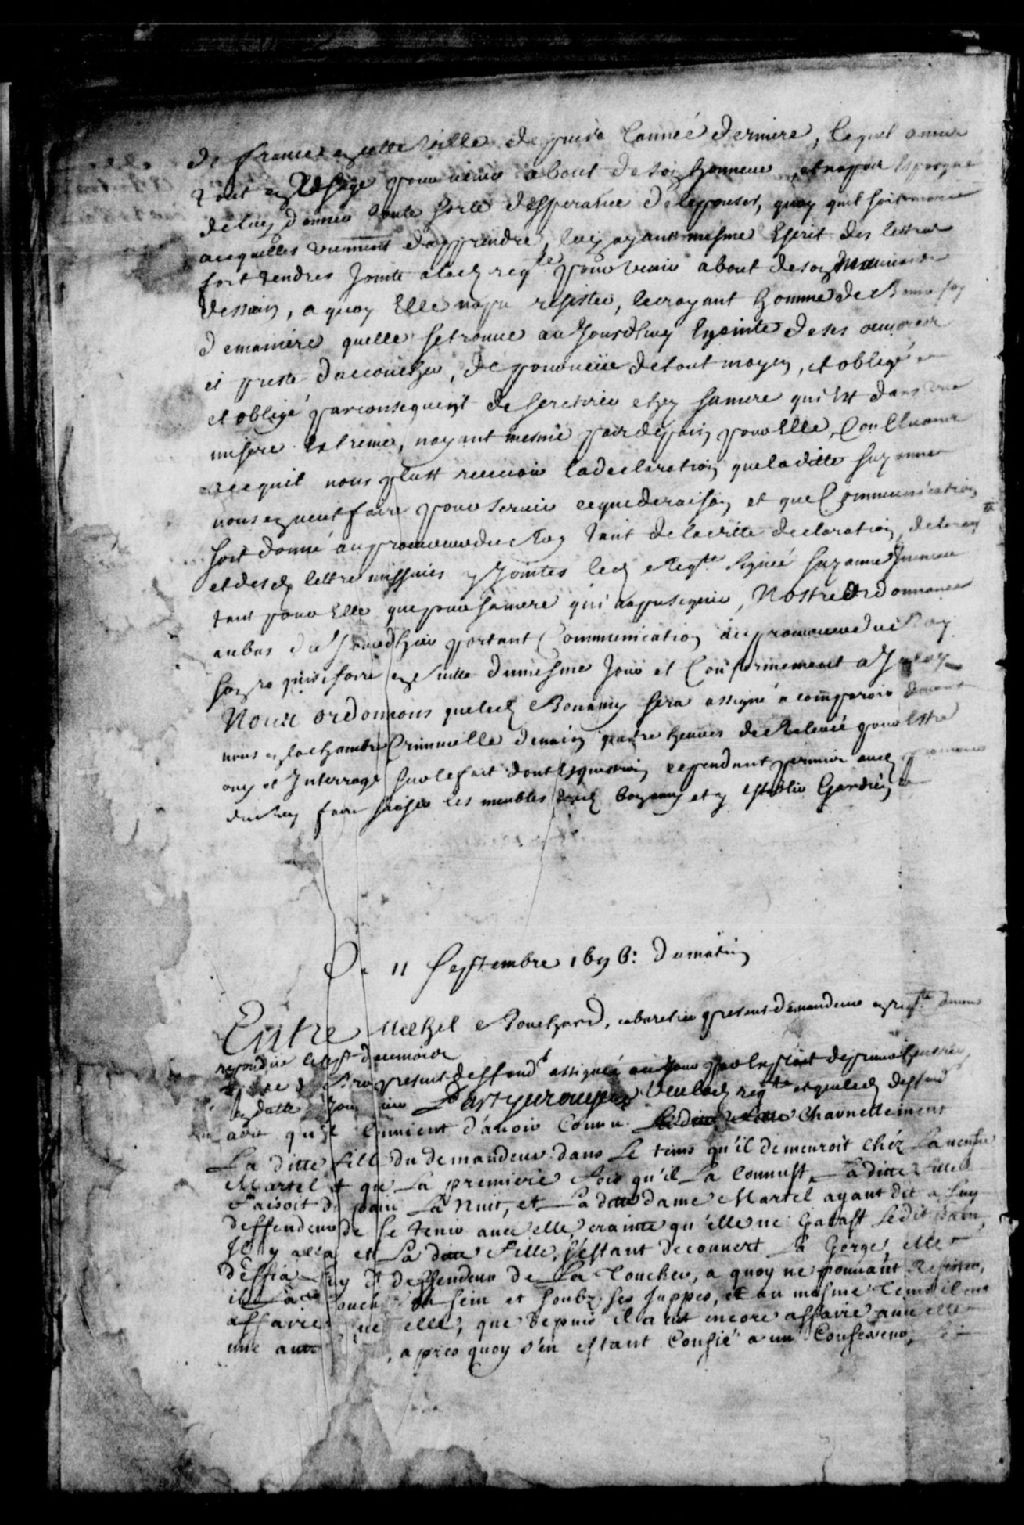 de france en cette ville depuis l'année derniere, lequel a mis
tout en usage pour venir a bout de son honneur, et n'a pas Espargné
de luy donner toute sorte d'Esperance de l'epouser, quoy qu'il soit marié
a ce qu'elles viennent d'apprendre, luy ayant mesme Escrit des lettres
fort tendres Jointe a lad reqte pour venir about de son mauvais
dessein, a quoy Elle n'a pu resister, le croyant homme de bonne foy
de maniere quelle se trouve au Jourdhuy Enceinte de ses oeuvres
et preste d'accoucher, de pourveüe de tout moyen, et obligé
et obligé par consequent de se retirer chez sa mere qui Est dans une
misere Extreme, n'ayant mesme pas de pain pour Elle, Concluant
a ce quil nous plust recevoir la declaration que la ditte Suzanne
nous en vient faire pour servir ce que de raison et que Communication
soit donné au procureur du Roy tant de la ditte declaration
et desd lettres missives y Jointes lad Reqte signée Suzanne
tant pour Elle que pour sa mere qui n'a pu signer, Nostre Ordonnance
au bas du Jourdhier portant Communication au procureur du Roy
son requisitoire en suitte du mesme Jour et Conformement a Iceluy
Nous ordonnons que led Bonamy sera assigné a comparoir devant
nous en la chambre Criminelle demain quatre heures de Relevée pour Estre
ouy et Interrogé sur le fait dont Esquestion cependant permis aud procureur
du Roy faire saisir les meubles dud bonamy et y Establir Gardien
Du 11 Septembre 1696: du matin
Entre Michel Bouchard, cabaretier present demandeur en reqte
repondüe le
present deffendt assigné
de cette Jour Partyes ouyes Veu lad reqte et que led deffendt
qu'il Convient d'avoir Connu Charnellement
La ditte fille du demandeur dans le tems qu'il demeuroit chéz La veufve
Martel et que La premiere fois qu'il La Connust, La ditte fille
faisoit du pain La Nuit, et La ditte dame Martel ayant dit a Luy
deffendeur de se tenir avec elle, crainte qu'elle ne Gatast Ledit pain,
Il y alla et La ditte fille, s'estant decouvert La Gorge, elle
deffia Luy dt deffendeur de La Toucher, a quoy ne pouvant Resister,
il La Toucha au sein et soubz ses juppes, et au mesme Tems il eut
affaire avec elle, que depuis il a eut encore affaire avec elle
une autre , apres quoy s'en estant Confié a un Confesseur,